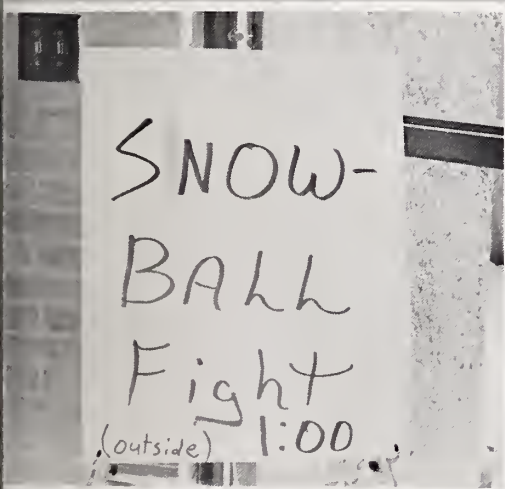 SNOW-
BALL
Fight
(outside) 1:00